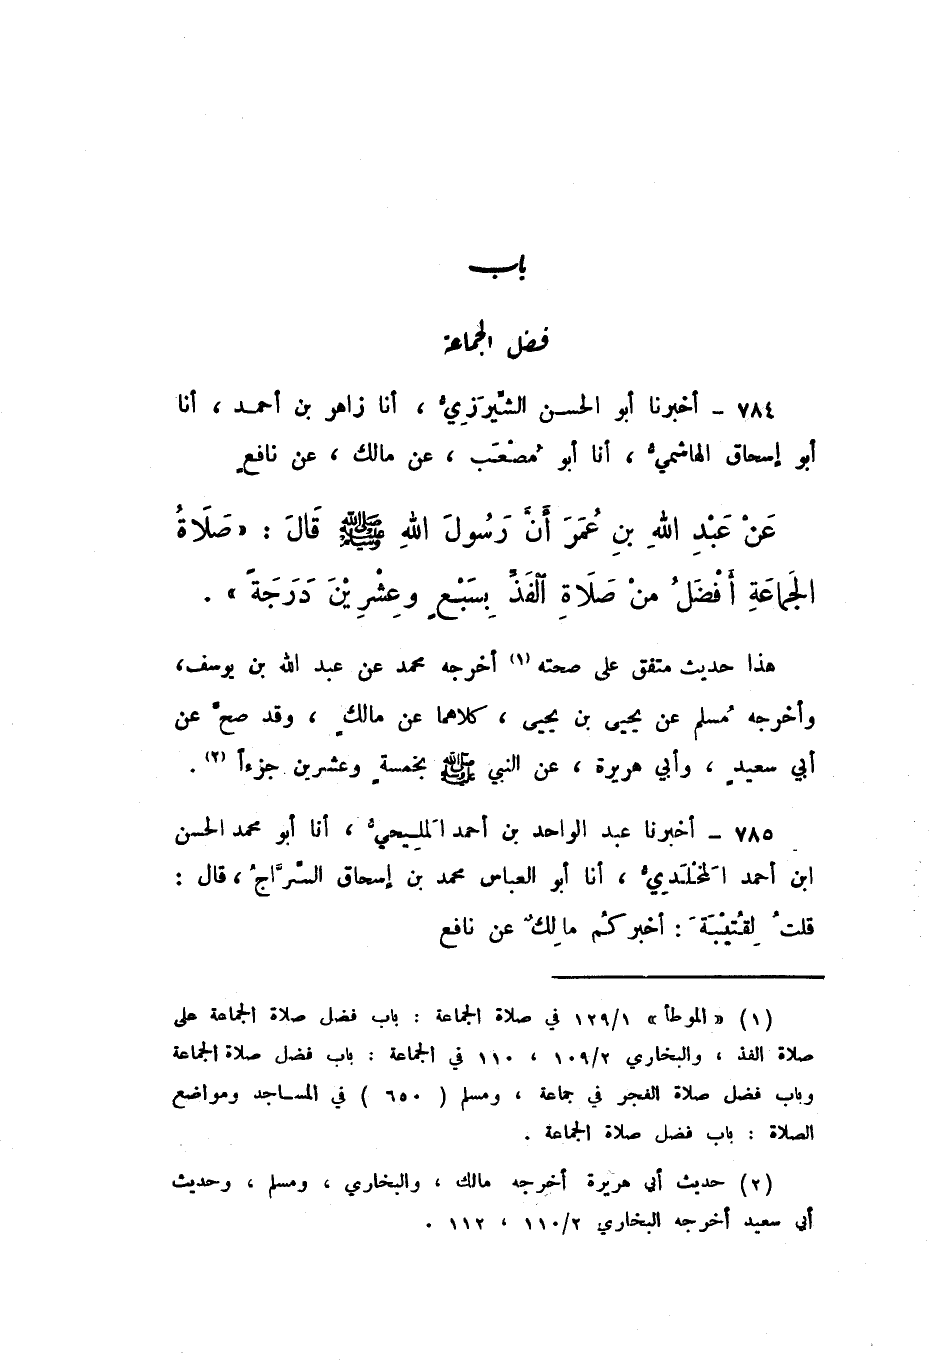 باب
فضل الجماعة
٧٨٤ – أخبرنا أبو الحسن الشّيرَزِيُّ ، أنا زاهر بن أحمد ، أنا
أبو إسحاق الهاشميُّ ، أنا أبو مُصْعَب ، عن مالك ، عن نافعٍ
عَنْ عَبْدِ اللهِ بنِ عُمَرَ أَنَّ رَسُولَ اللهِ ﷺ قَالَ : « صَلَاةُ
الجَمَاعَةِ أَفْضَلُ منْ صَلَاةِ الْفَذِّ بِسَبْعٍ وعِشْرِيْنَ دَرَجَةً » .
هذا حديث متفق على صحته (١) أخرجه محمد عن عبد الله بن يوسف،
وأخرجه مُسلم عن يحيى بن يحيى ، كلاهما عن مالكٍ ، وقد صحَّ عن
أبي سعيدٍ ، وأبي هريرة ، عن النبي ﷺ بخمسةٍ وعشرين جزءاً (٢) .
٧٨٥ – أخبرنا عبد الواحد بن أحمد المَلِيحيُّ ، أنا أبو محمد الحسن
ابن أحمد المَخْلَديُّ ، أنا أبو العباس محمد بن إسحاق السَّرَّاجُ ، قال :
قلتُ لِقُتَيْبَةَ : أخبركُم مالِكٌ عن نافع
(١) « الموطأ » ١٢٩/١ في صلاة الجماعة : باب فضل صلاة الجماعة على
صلاة الفذ ، والبخاري ١٠٩/٢ ، ١١٠ في الجماعة : باب فضل صلاة الجماعة
وباب فضل صلاة الفجر في جماعة ، ومسلم ( ٦٥٠ ) في المساجد ومواضع
الصلاة : باب فضل صلاة الجماعة .
(٢) حديث أبي هريرة أخرجه مالك ، والبخاري ، ومسلم ، وحديث
أبي سعيد أخرجه البخاري ١١٠/٢ ، ١١٢ .